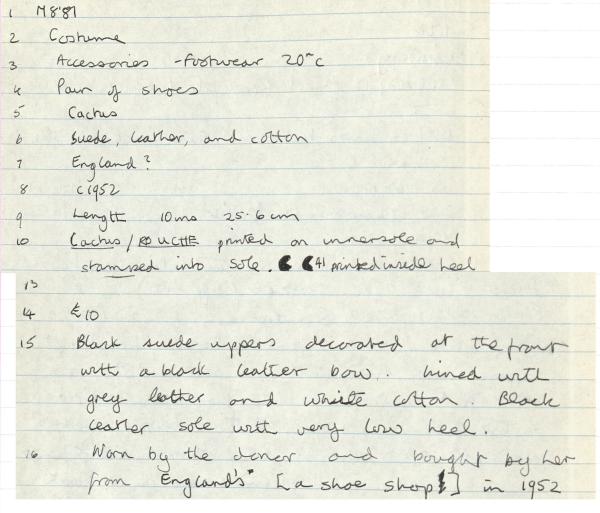 1 M8'87
2 Costume
3 Accessories - Footwear 20thc
4 Pair of shoes
5 Cactus
6 Suede, leather, and cotton
7 England?
8 c1952
9 Length 10ins 25.6cm
10 Cactus / ROUCHE printed on innersole and
stamped into sole. 41 printed inside heel
13
14 £10
15 Black suede uppers decorated at the front
with a black leather bow. Lined with
grey leather and white cotton. Black
leather sole with very low heel.
16 Worn by the donor and bought by her
from England's" [a shoe shop] in 1952